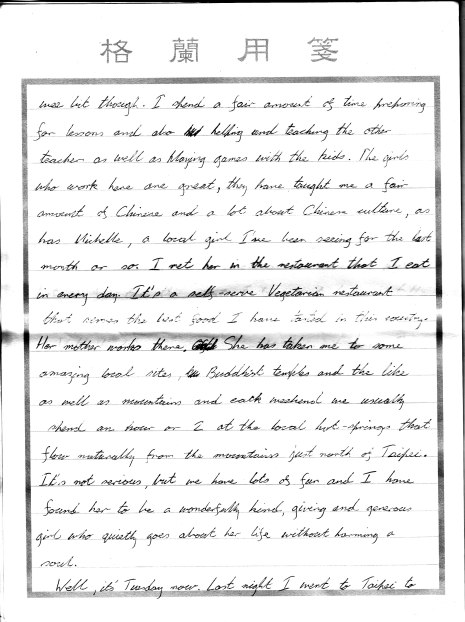 格蘭用箋
wee bit though. I spend a fair amount of time preparing
for lessons and also helping and teaching the other
teacher as well as playing games with the kids. The girls
who work here are great, they have taught me a fair
amount of Chinese and a lot about Chinese culture, as
has Michelle, a local girl I've been seeing for the last
month or so. I met her in the restaurant that I eat
in every day. It's a self-serve Vegetarian restaurant
that serves the best food I have tasted in this country.
Her mother works there. She has taken me to some
amazing local sites, Buddhist temples and the like
as well as mountains and each weekend we usually
spend an hour or 2 at the local hot-springs that
flow naturally from the mountains just north of Taipei.
It's not serious, but we have lots of fun and I have
found her to be a wonderfully kind, giving and generous
girl who quietly goes about her life without harming a
soul.
Well, it's Tuesday now. Last night I went to Taipei to